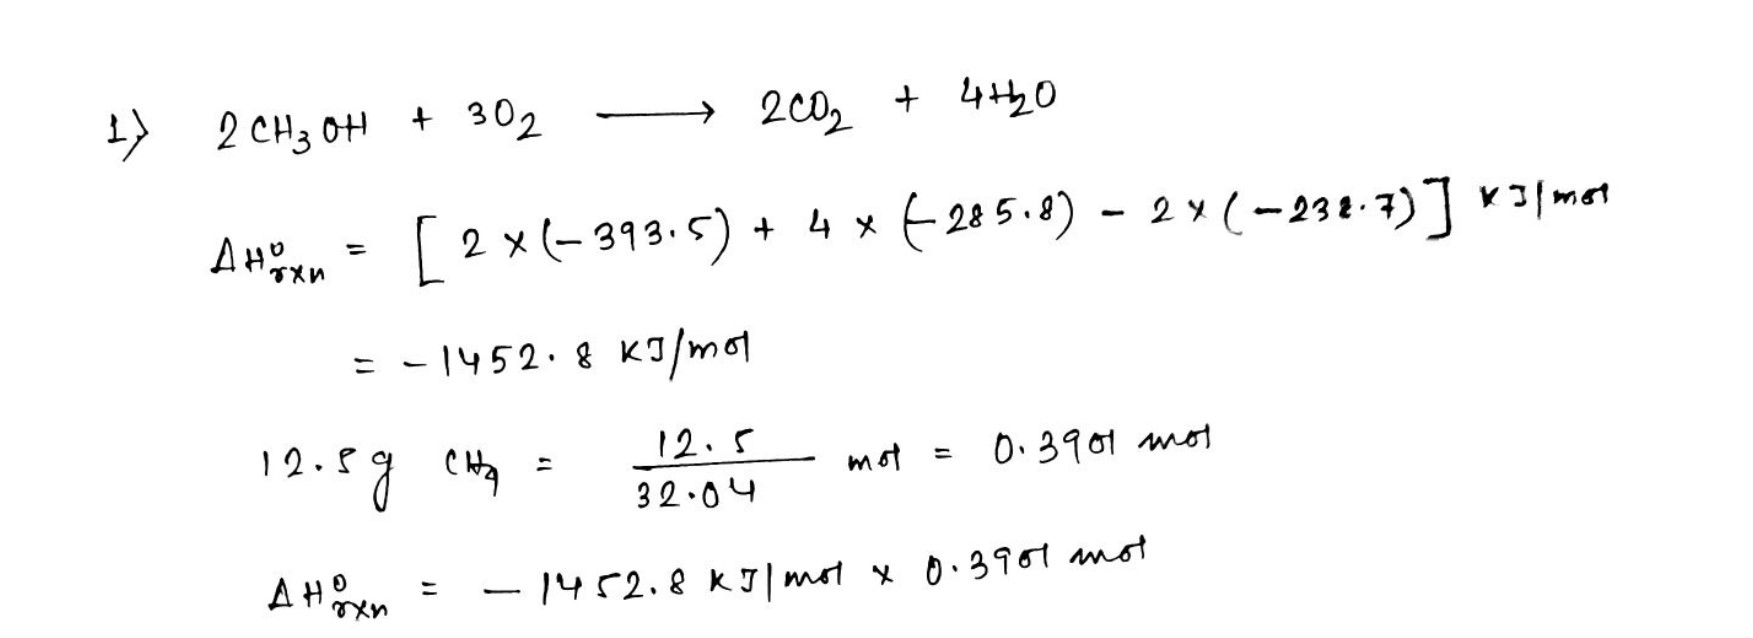 1) 2CH₃OH + 3O₂ ⟶ 2CO₂ + 4H₂O
ΔH°rxn = [2×(-393.5) + 4×(-285.8) - 2×(-238.7)] KJ/mol
= -1452.8 KJ/mol
12.5g CH₄ = 12.5/32.04 mol = 0.3901 mol
ΔH°rxn = -1452.8 KJ/mol × 0.3901 mol